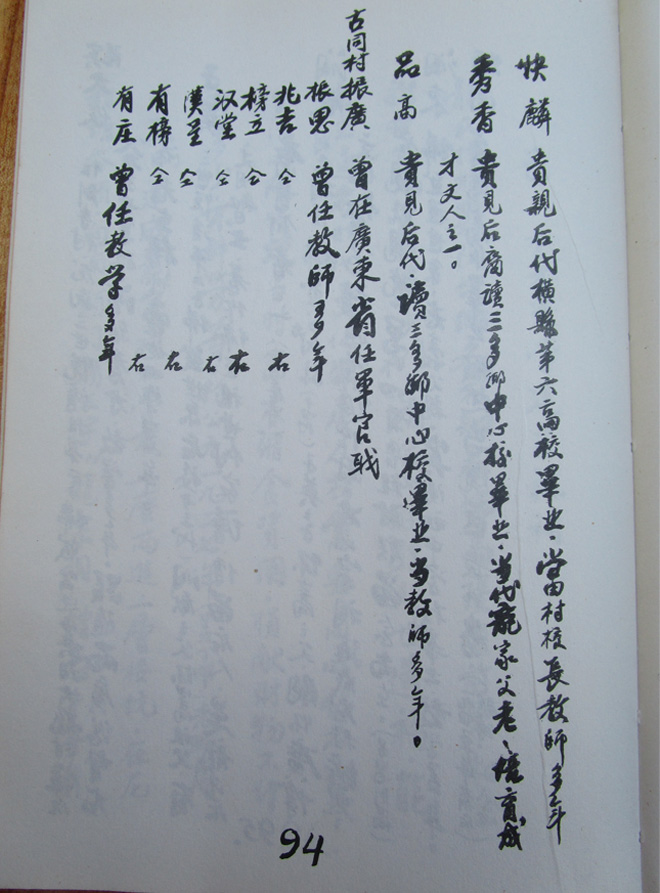 快麟 貴親后代橫縣第六高校畢业．當田村校長教師多年
秀香 貴見后裔讀三多鄉中心校畢业．当代寵家父老、培育成
才文人之一。
品高 貴見后代．讀三多鄉中心校畢业．当教師多年。
古同村振廣 曾在廣東省任軍官职
振思 曾任教師多年
兆吉 仝 右
榜立 仝 右
汉堂 仝 右
漢呈 仝 右
有榜 仝 右
有庄 曾任教学多年
94